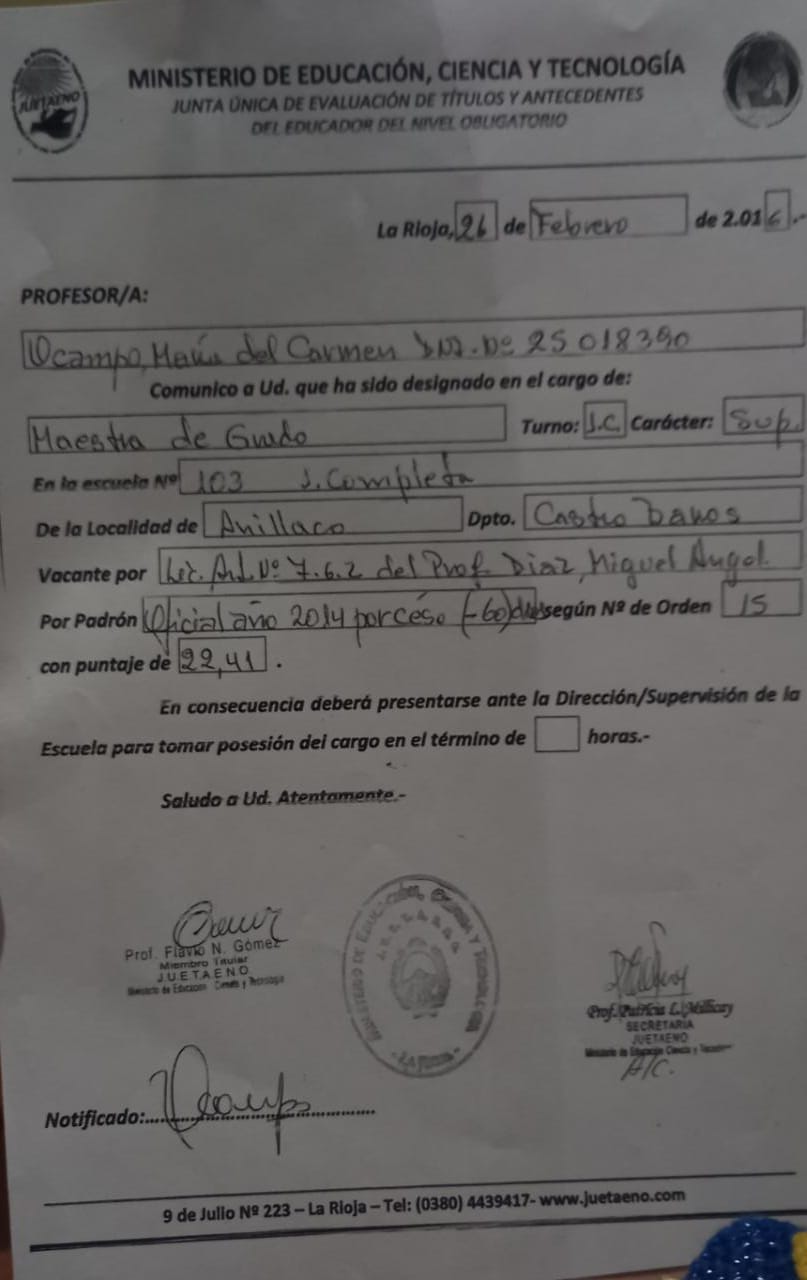 JUETAENO
MINISTERIO DE EDUCACIÓN, CIENCIA Y TECNOLOGÍA
JUNTA ÚNICA DE EVALUACIÓN DE TÍTULOS Y ANTECEDENTES
DEL EDUCADOR DEL NIVEL OBLIGATORIO
La Rioja, 26 de Febrero de 2.016.-
PROFESOR/A:
Ocampo, María del Carmen DNI. Nº 25 018390
Comunico a Ud. que ha sido designado en el cargo de:
Maestra de Grado Turno: J.C. Carácter: Sup.
En la escuela Nº 103 J. Completa
De la Localidad de Anillaco Dpto. Castro Barros
Vacante por Lic. Art. Nº 7.6.2 del Prof. Diaz, Miguel Angel.
Por Padrón Oficial año 2014 por céso (-60) según Nº de Orden 15
con puntaje de 22,41.
En consecuencia deberá presentarse ante la Dirección/Supervisión de la
Escuela para tomar posesión del cargo en el término de horas.-
Saludo a Ud. Atentamente.-
Prof. Flavio N. Gómez
Miembro Titular
J.U.E.T.A.E.N.O.
Ministerio de Educación Ciencia y Tecnología
MINISTERIO DE EDUCACIÓN, CIENCIA Y TECNOLOGÍA
- LA RIOJA -
Prof. Patricia L. Millicay
SECRETARIA
JUETAENO
Ministerio de Educación Ciencia y Tecnología
A/C.
Notificado: Ocampo
9 de Julio Nº 223 – La Rioja – Tel: (0380) 4439417- www.juetaeno.com